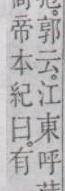 郭云。江東呼
帝本紀曰。有